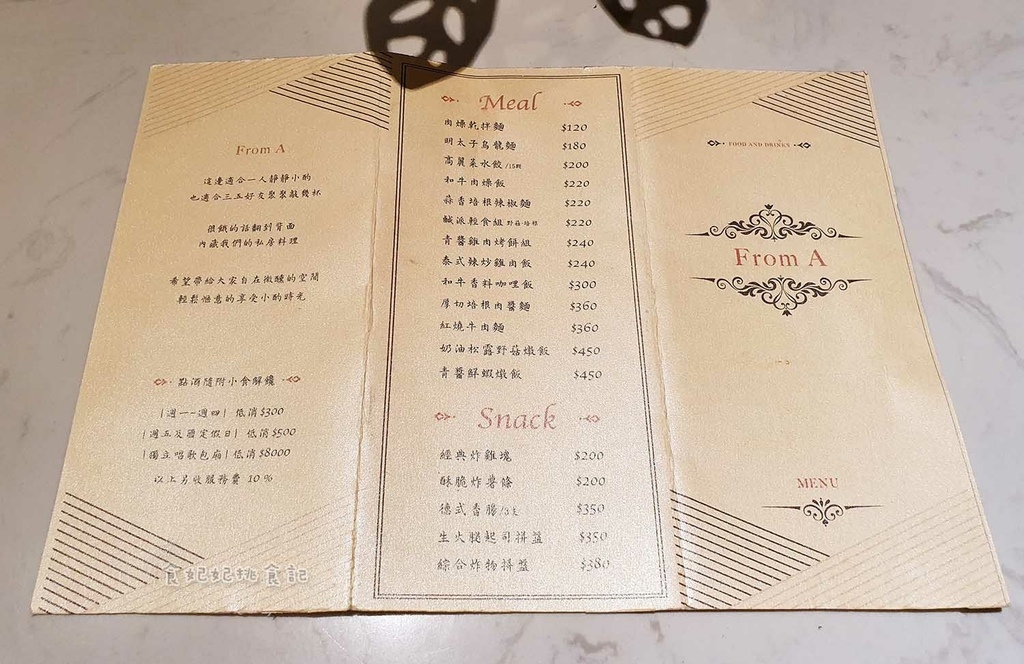 From A
這邊適合一人靜靜小酌
也適合三五好友聚聚敲幾杯
很餓的話翻到背面
內藏我們的私房料理
希望帶給大家自在微醺的空間
輕鬆愜意的享受小酌時光
點酒隨附小食解饞
|週一-週四| 低消$300
|週五及國定假日| 低消$500
|獨立唱歌包廂| 低消$8000
以上另收服務費 10%
Meal
肉燥乾拌麵 $120
明太子烏龍麵 $180
高麗菜水餃/15顆 $200
和牛肉燥飯 $220
蒜香培根辣椒麵 $220
鹹派輕食組 野菇·培根 $220
青醬雞肉烤餅組 $240
泰式辣炒雞肉飯 $240
和牛香料咖哩飯 $300
厚切培根肉醬麵 $360
紅燒牛肉麵 $360
奶油松露野菇燉飯 $450
青醬鮮蝦燉飯 $450
Snack
經典炸雞塊 $200
酥脆炸薯條 $200
德式香腸/3支 $350
生火腿起司拼盤 $350
綜合炸物拼盤 $380
FOOD AND DRINKS
From A
MENU
食妃妃挑食記